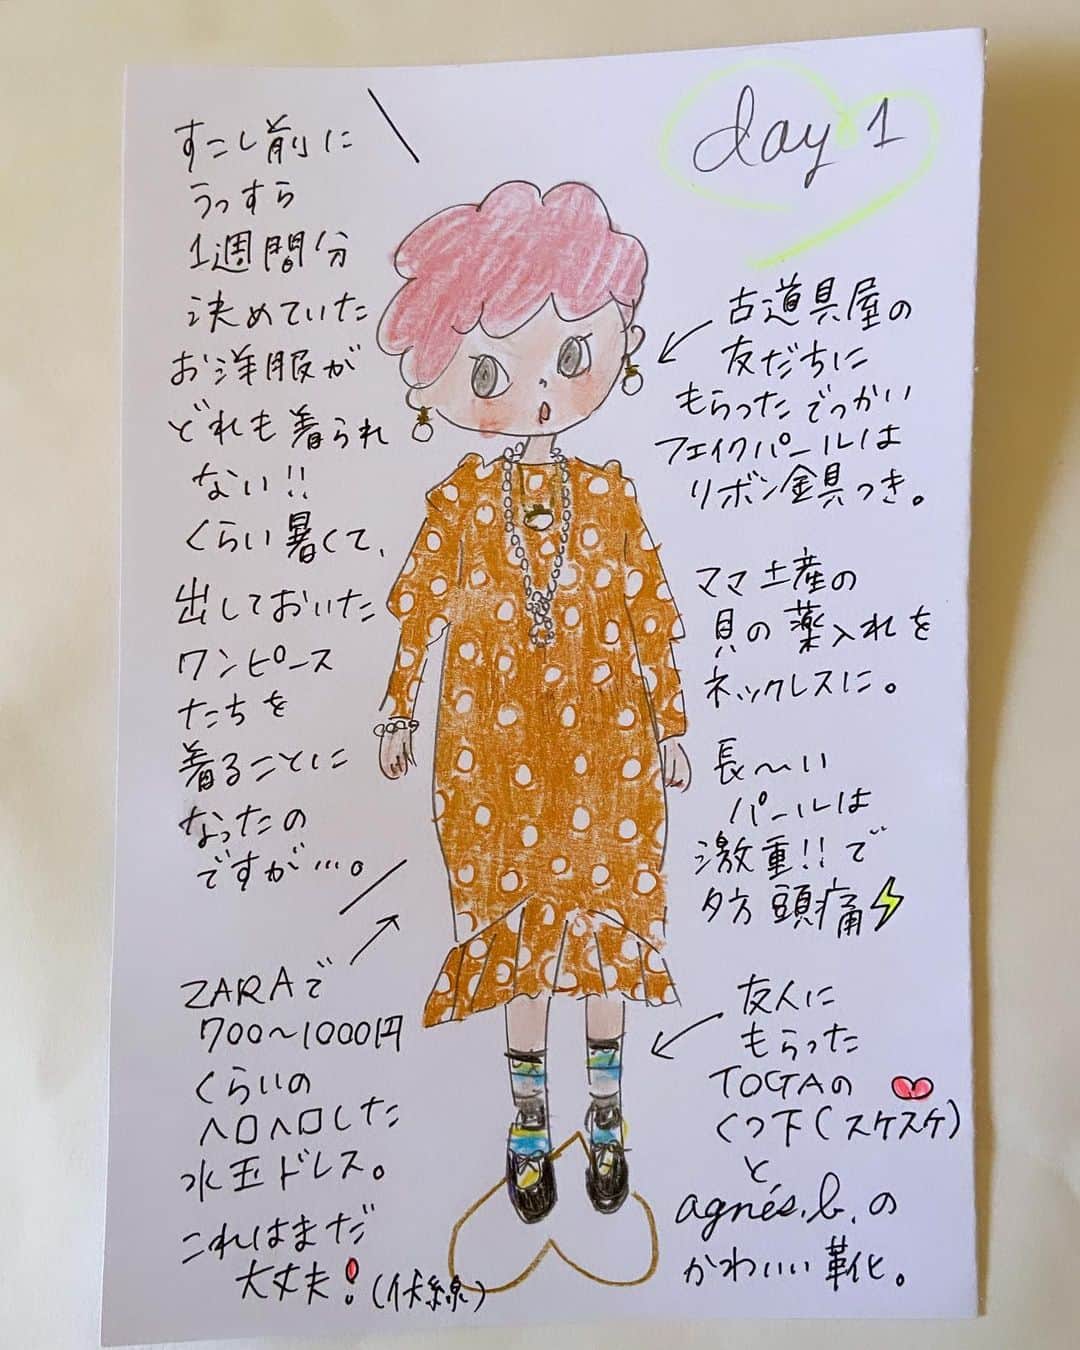 day 1
すこし前に
うっすら
1週間分
決めていた
お洋服が
どれも着られ
ない!!
くらい暑くて、
出しておいた
ワンピース
たちを
着ることに
なったの
ですが…。
ZARAで
700〜1000円
くらいの
ヘロヘロした
水玉ドレス。
これはまだ
大丈夫!(伏線)
古道具屋の
友だちに
もらったでっかい
フェイクパールは
リボン金具つき。
ママ土産の
貝の薬入れを
ネックレスに。
長〜い
パールは
激重!!で
夕方頭痛
友人に
もらった
TOGAの
くつ下(スケスケ)
と、
agnés.b.の
かわいい靴。